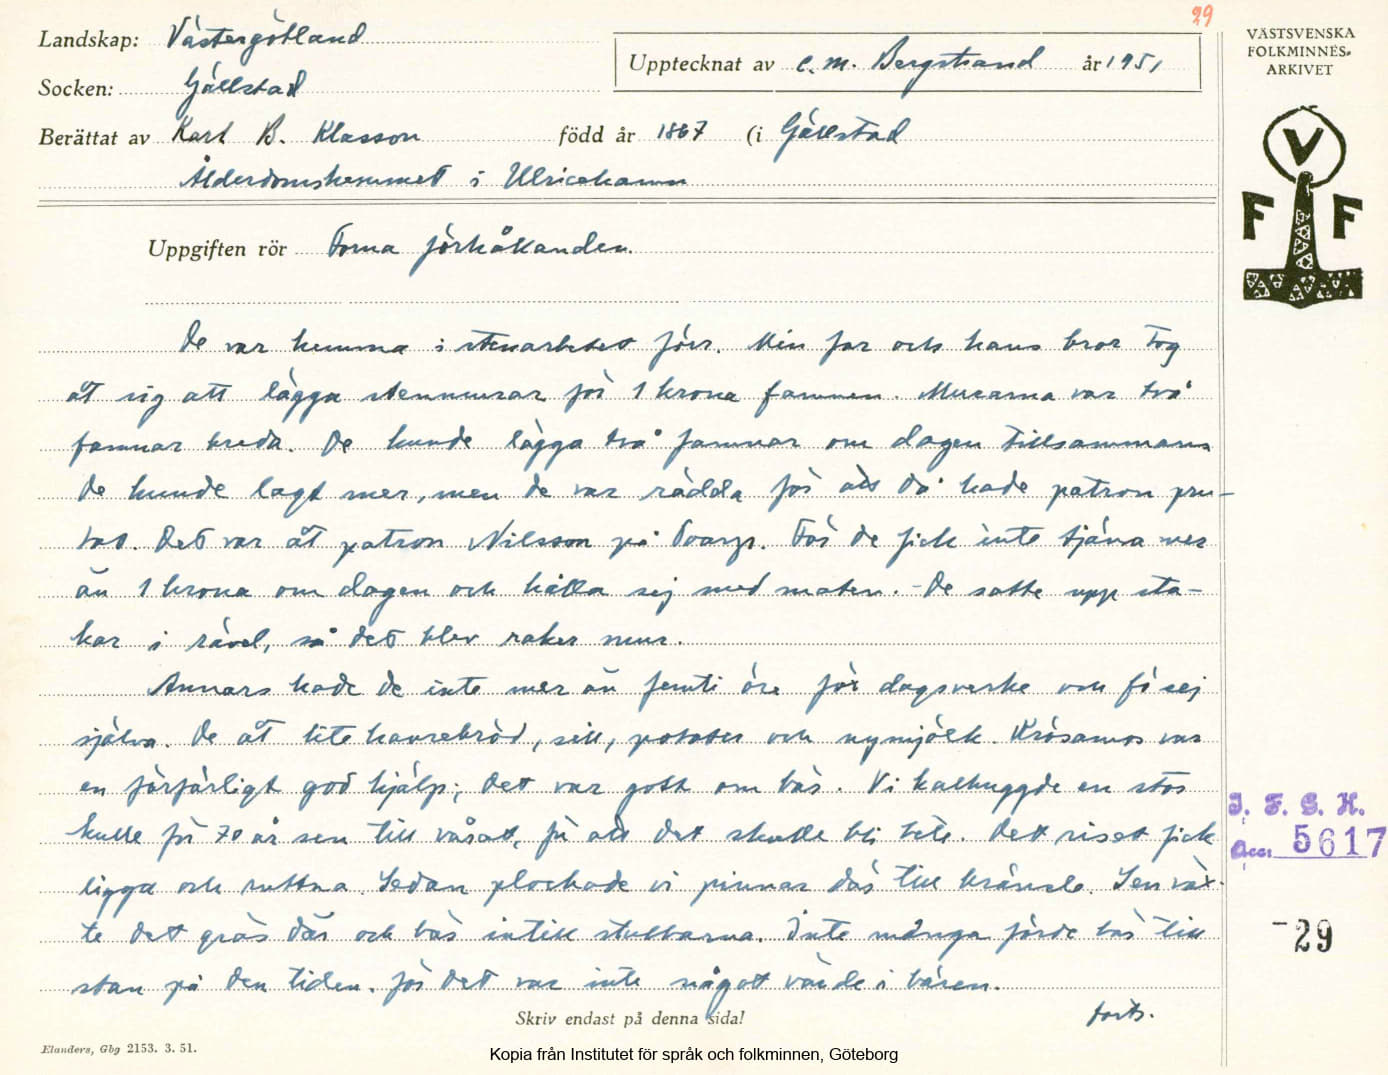 29
Landskap: Västergötland
Upptecknat av C. M. Bergstrand år 1951
Socken: Gällstad
Berättat av Karl B. Klasson född år 1867 (i Gällstad
Ålderdomshemmet i Ulricehamn
Uppgiften rör Forna förhållanden.
VÄSTSVENSKA
FOLKMINNES-
ARKIVET
V
F F
De var hemma i stenarbetet förr. Min far och hans bror tog
åt sig att lägga stenmurar för 1 krona famnen. Murarna var två
famnar breda. De kunde lägga två famnar om dagen tillsammans
De kunde lagt mer, men de var rädda för att då hade patron pru-
tat. Det var åt patron Nilsson på Toarp. För de fick inte tjäna mer
än 1 krona om dagen och hålla sej med maten. - De satte upp sta-
kar i rävel, så det blev raker mur.
Annars hade de inte mer än femti öre för dagsverke och få sej
själva. De åt lite havrebröd, sill, potatis och nymjölk. Krösamos var
en förfärligt god hjälp; det var gott om bär. Vi kalhuggde en stor
kulle för 70 år sen till våratt, för att det skulle bli bete. Det riset fick
ligga och ruttna. Sedan plockade vi pinnar där till bränsle. Sen väx-
te det gräs där och bär intill stubbarna. Inte många förde bär till
stan på den tiden, för det var inte något värde i bären.
forts.
Skriv endast på denna sida!
Elanders, Gbg 2153. 3. 51.
I. F. G. H.
Acc. 5617
-29
Kopia från Institutet för språk och folkminnen, Göteborg